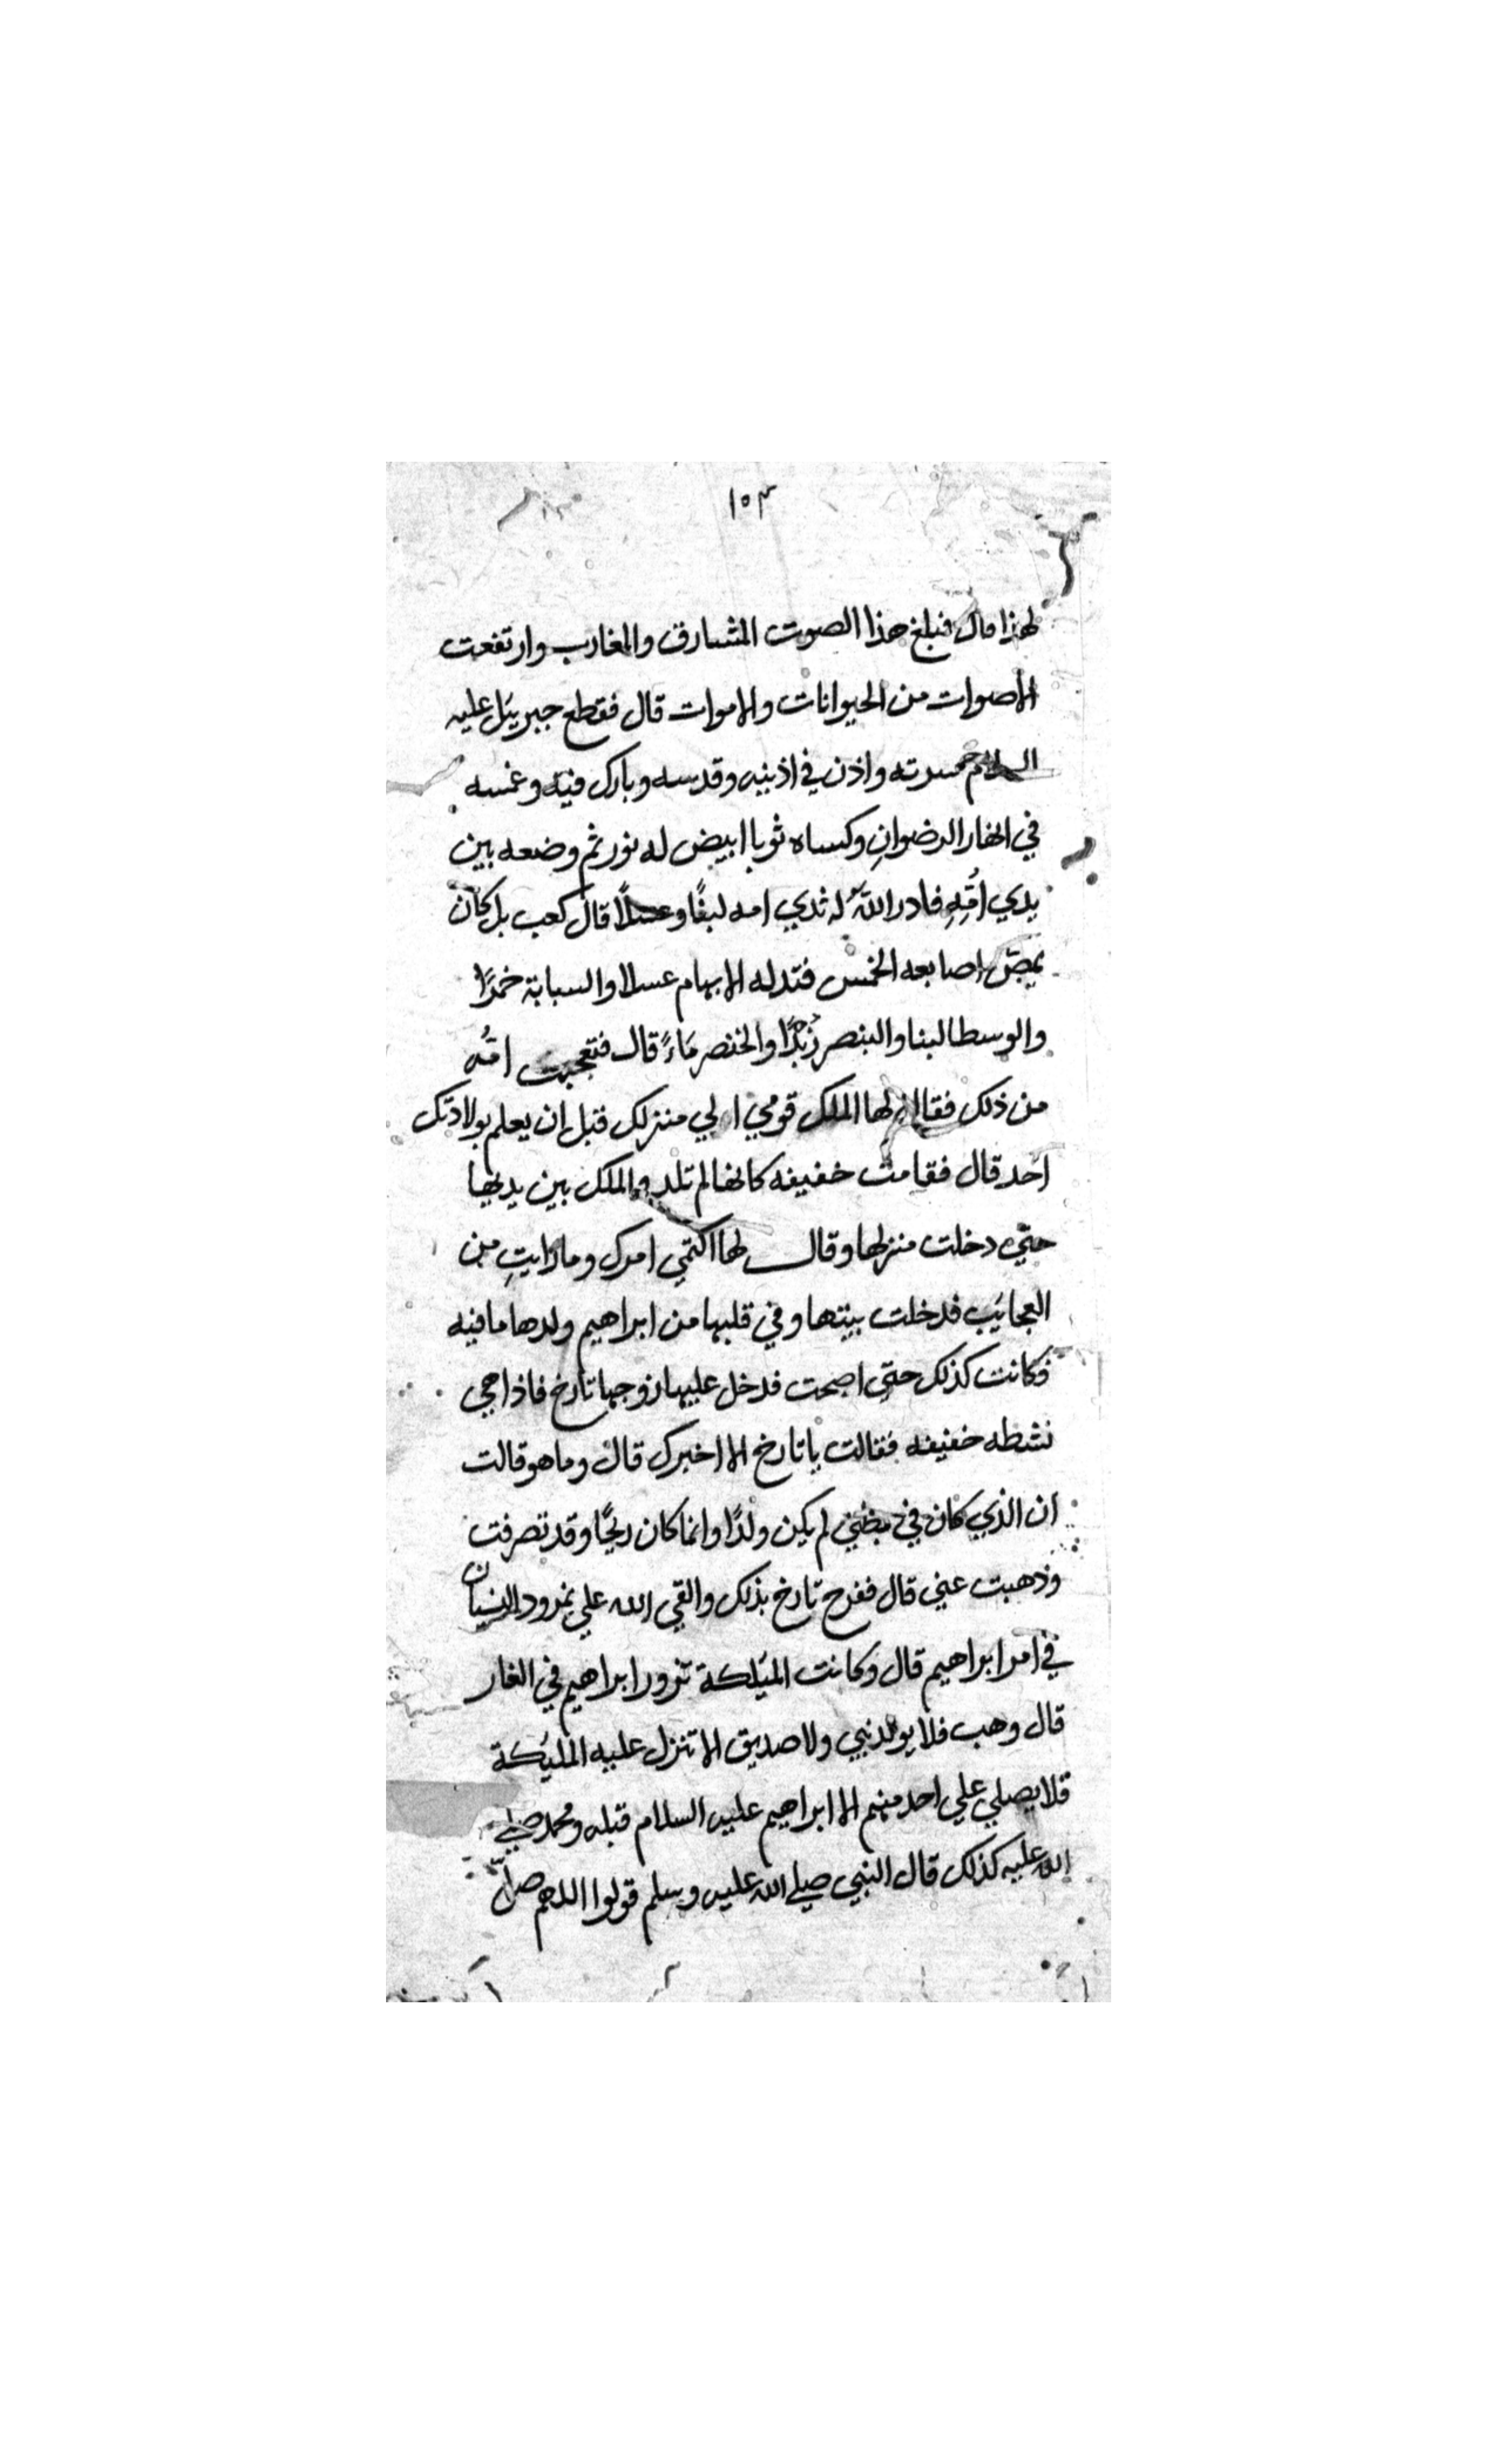 ١٥٣
لهذا قال فبلغ هذا الصوت المشارق والمغارب وارتفعت
الاصوات من الحيوانات والاموات قال فقطع جبريئل عليه
السلام سرته واذن في اذنيه وقدسه وبارك فيه وغمسه
في انهار الرضوانِ وكساه ثوبا ابيض له نور ثم وضعه بين
يدي اُمِّهِ فادر اللّه له ثدي امه لبنًا وعسلًا قال كعب بل كان
يمصّ اصابعه الخمس فتدله الابهام عسلا والسبابة خمرًا
والوسطا لبنا والبنصر زُبْدًا والخنصر مَاءً قال فتعجبت امُّه
من ذلك فقال لها الملك قومي الي منزلك قبل ان يعلم بولادتك
احد قال فقامت خفيفه كانها لم تلد والملك بين يديها
حتي دخلت منزلها وقال لها اكتمي امرك وما رايتِ من
العجايَب فدخلت بيتها وفي قلبها من ابراهيم ولدها ما فيه
فكانت كذلك حتي اصبحت فدخل عليها زوجها تارخ فاذا هي
نشطه خفيفه فقالت يا تارخ الا اخبرك قال وما هو قالت
ان الذي كان في بطني لم يكن ولدًا وانما كان ريحًا وقد تصرفت
وذهبت عني قال ففرح تارخ بذلك والقي الله علي نمرود النسيان
في امر ابراهيم قال وكانت الميَلكة تزور ابراهيم في الغار
قال وهب فلا يولد نبي ولا صديق الا تنزل عليه المليَكة
فلا يصلي علي احد منهم الا ابراهيم عليه السلام قبله ومحمد صلي
الله عليه كذلك قال النبي صلي الله عليه وسلم قولوا اللهم صلّ